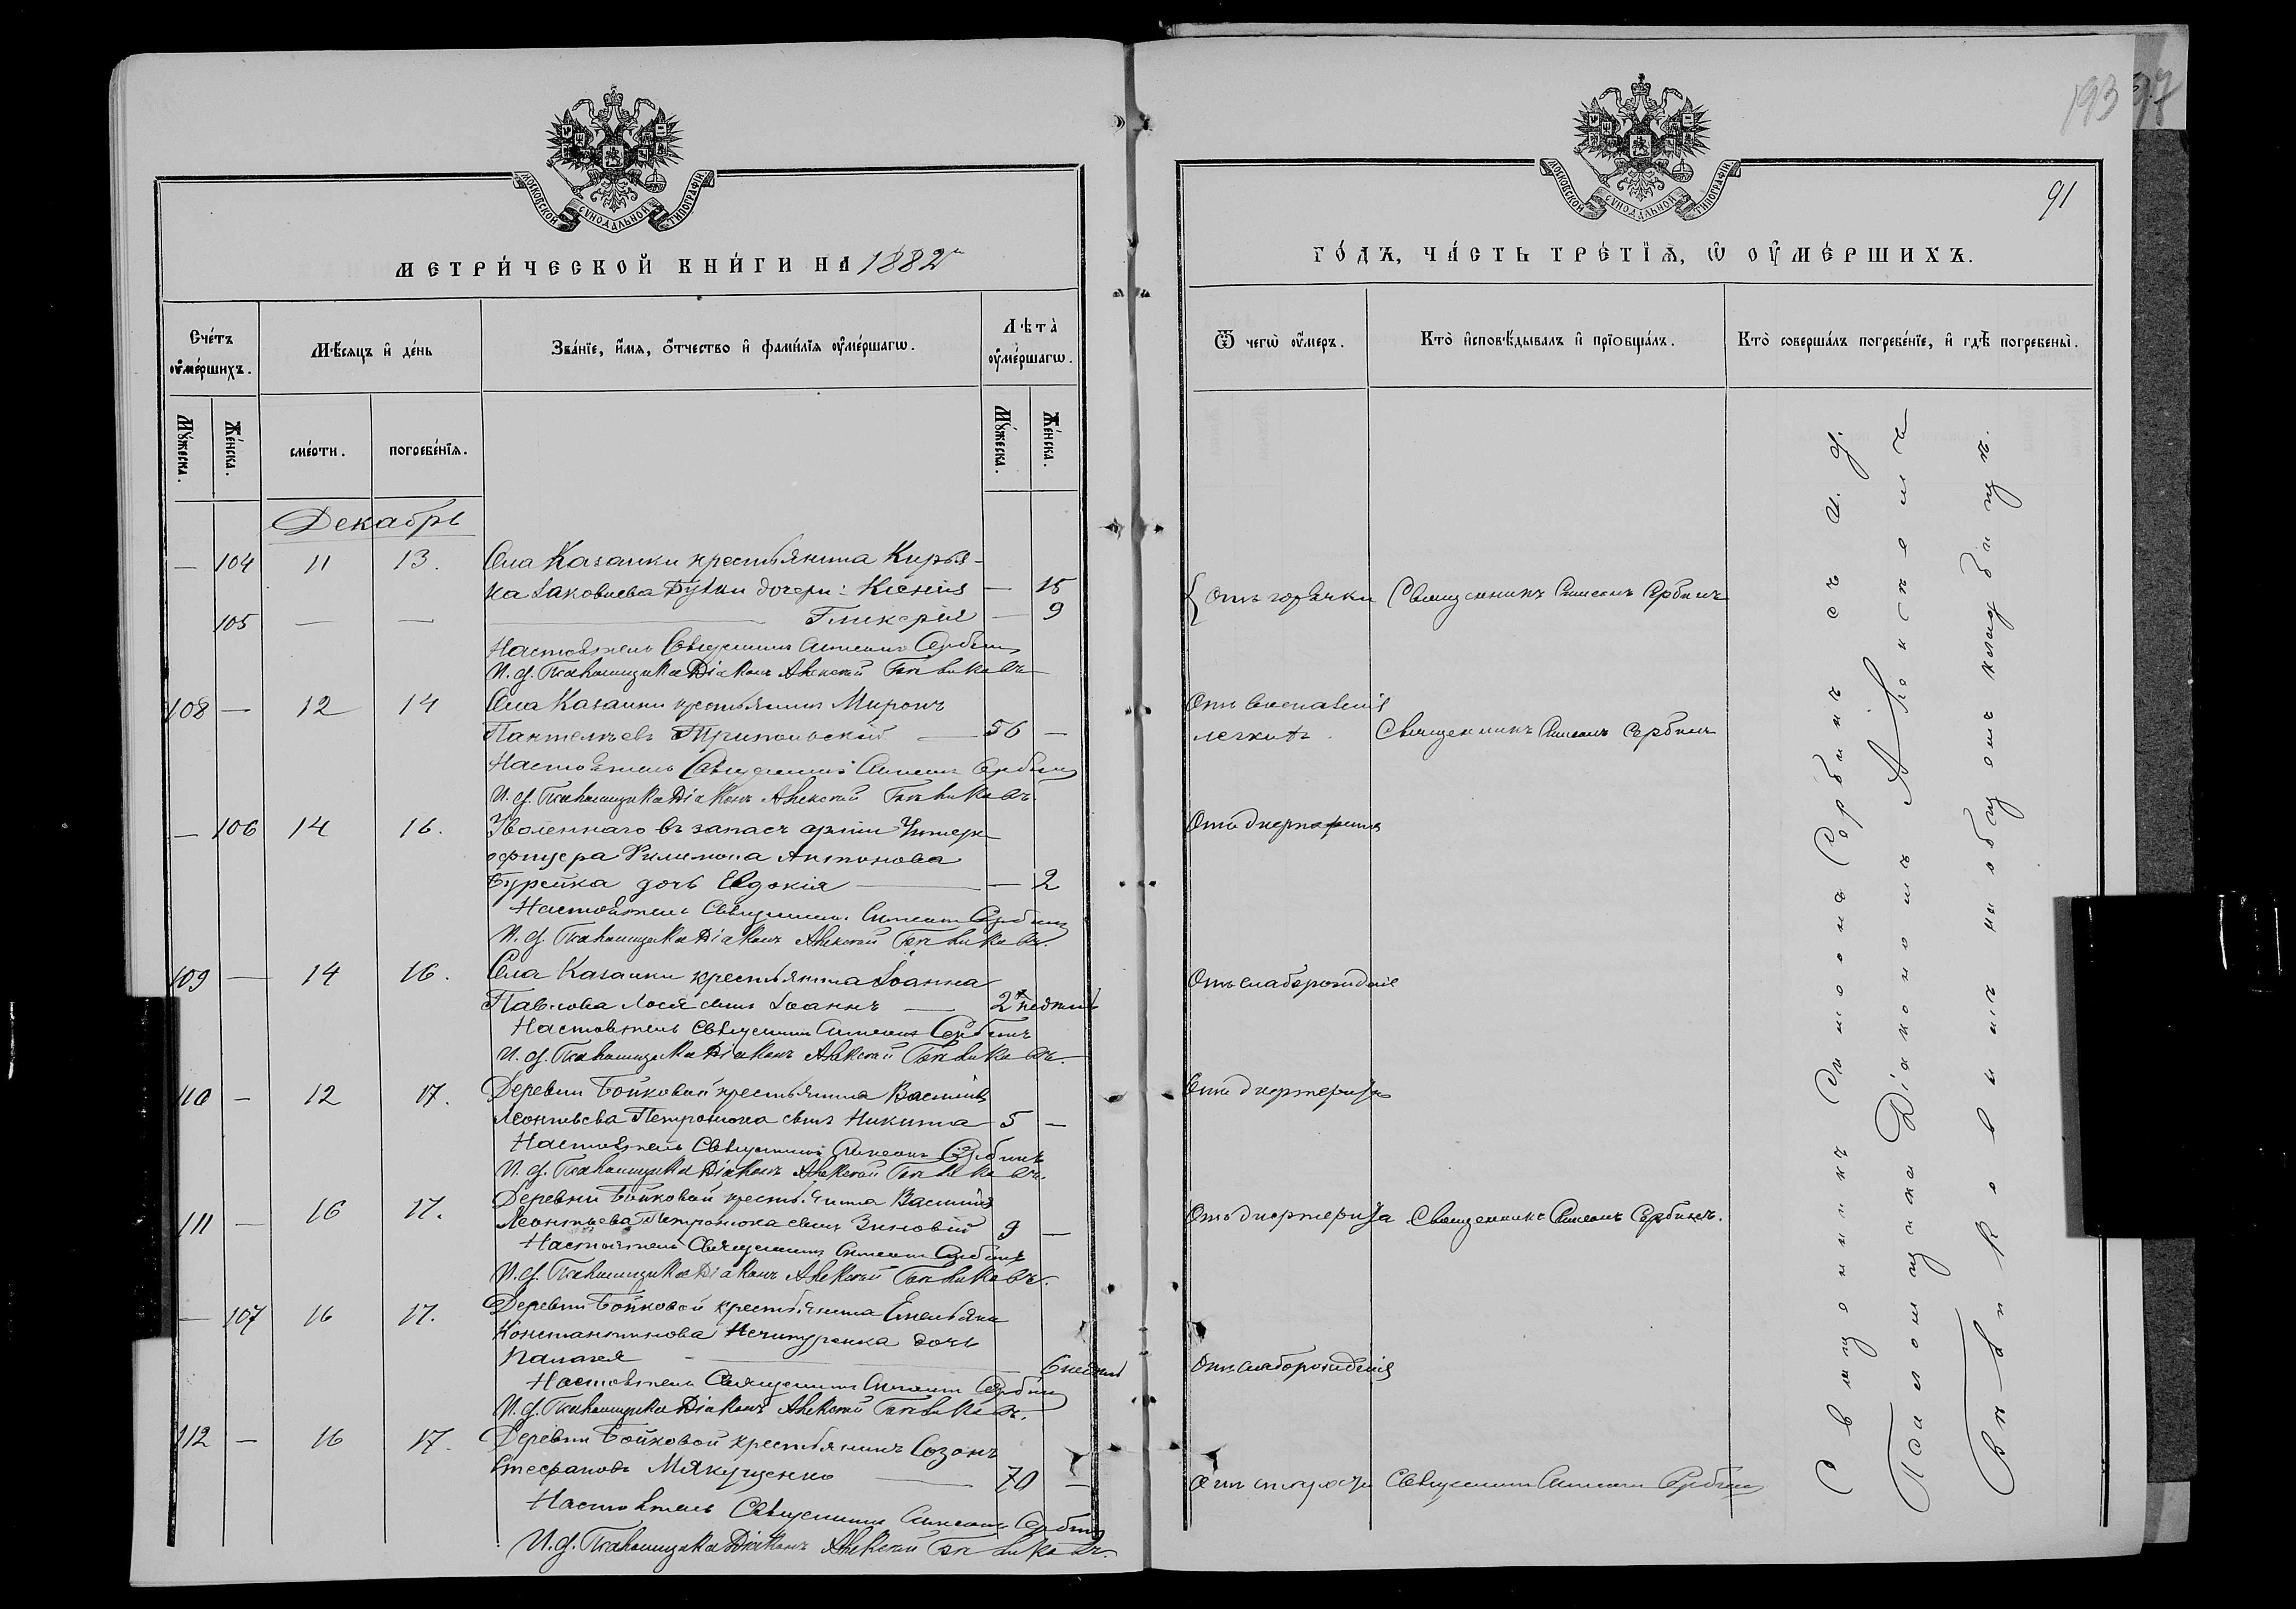 193 97
91
МОСКОВСКОЙ СѴНОДАЛЬНОЙ ТИПОГРАФІИ
МОСКОВСКОЙ СѴНОДАЛЬНОЙ ТИПОГРАФІИ
МЕТРИ́ЧЕСКОЙ КНИ́ГИ НА 1882й
ГО́ДЪ, ЧА́СТЬ ТРЕ́ТЇѦ, Ѡ ОУ҆МЕ́РШИХЪ.
Сче́тъ оу҆ме́ршихъ.
Мѣ́сѧцъ и҆ де́нь
Зва́нїе, и҆́мѧ, ѻ҆́тчество и҆ фами́лїѧ оу҆ме́ршагѡ.
Лѣ́та оу҆ме́ршагѡ.
Ѿ чегѡ̀ оу҆́меръ.
Кто̀ и҆сповѣ́дывалъ и҆ прїѻбща́лъ.
Кто̀ соверша́лъ погребе́нїе, и҆ гдѣ̀ погребены̀.
Мꙋ́жеска.
Же́нска.
сме́рти.
погребе́нїѧ.
Мꙋ́жеска.
Же́нска.
Декабрь
— 104 11 13. Села Казанки крестьянина Кирья-
ка Іаковлева дочери: Ксенія — 15
{ отъ горячки Священникъ Симеонъ Сербинъ
105 — — Гликерія — 9
Настоятель Священникъ Симеонъ Сербинъ
И. д. Псаломщика Діаконъ Алексій
108 — 12 14 Села Казанки крестьянинъ Миронъ
Пантелѣевъ Трипольскій — 56 —
Отъ воспаленія
легкихъ. Священникъ Симеонъ Сербинъ
Настоятель Священникъ Симеонъ Сербинъ
И. д. Псаломщика Діаконъ Алексій
— 106 14 16. Уволеннаго въ запасъ арміи Унтеръ-
офицера Филимона Антонова
дочь Евдокія — — 2
Отъ дифтерита
Настоятель Священникъ Симеонъ Сербинъ
И. д. Псаломщика Діаконъ Алексій
109 — 14 16. Села Казанки крестьянина Іоанна
Павлова сынъ Іоаннъ — 2 недѣль
Отъ слаборожденія
Настоятель Священникъ Симеонъ Сербинъ
И. д. Псаломщика Діаконъ Алексій
110 — 12 17. Деревни Бойковой крестьянина Василія
Леонтьева Петронюка сынъ Никита 5 —
Отъ дифтерита
Настоятель Священникъ Симеонъ Сербинъ
И. д. Псаломщика Діаконъ Алексій
111 — 16 17. Деревни Бойковой крестьянина Василія
Леонтьева Петронюка сынъ Зиновій 9 —
Отъ дифтерита Священникъ Симеонъ Сербинъ.
Настоятель Священникъ Симеонъ Сербинъ
И. д. Псаломщика Діаконъ Алексій
— 107 16 17. Деревни Бойковой крестьянина Емельяна
Константинова Нечипуренка дочь
Палагея — 6 недѣль
Отъ слаборожденія
Настоятель Священникъ Симеонъ Сербинъ
И. д. Псаломщика Діаконъ Алексій
112 — 16 17. Деревни Бойковой крестьянинъ Созонъ
Стефановъ — 70 —
Отъ старости Священникъ Симеонъ Сербинъ
Настоятель Священникъ Симеонъ Сербинъ
И. д. Псаломщика Діаконъ Алексій
Священникъ Симеонъ Сербинъ съ и. д.
Псаломщика Діакономъ Алексіемъ
на общемъ кладбищѣ.